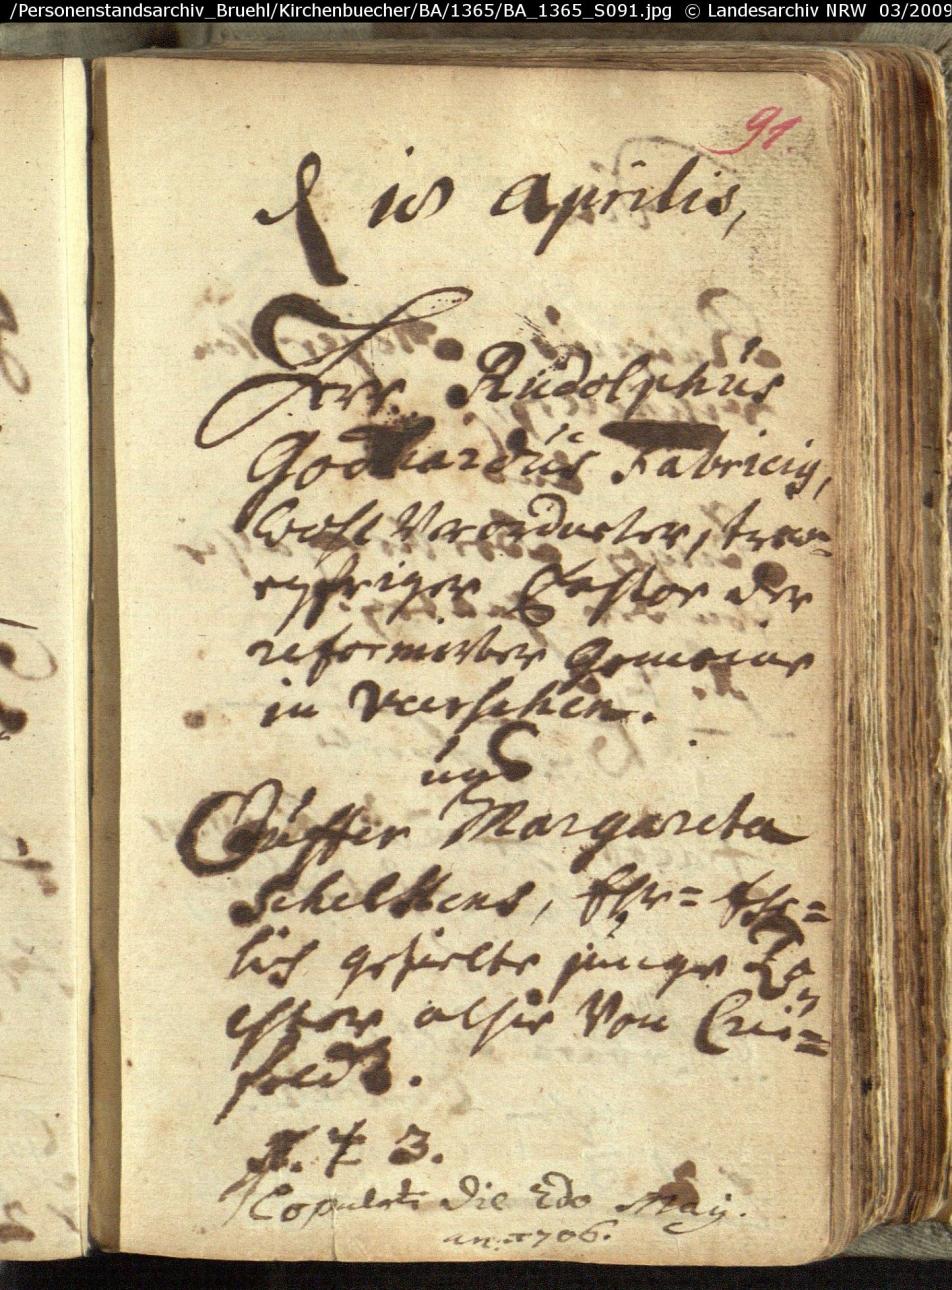 /Personenstandsarchiv_Bruehl/Kirchenbuecher/BA/1365/BA_1365_S091.jpg © Landesarchiv NRW 03/2009
91
d 18 Aprilis,
Herr Rudolphus
Godhardus Fabricių,
Wohl Verordneter, trew=
eyfriger Pastor der
reformirter Gemeine
in Viersehen.
und
Juffer Margareta
Scheltkens, Ehr=
lich gezielte junge To,
chter alhir Von Crü=
feldt.
Copulati die 2do May.
an. 1706.